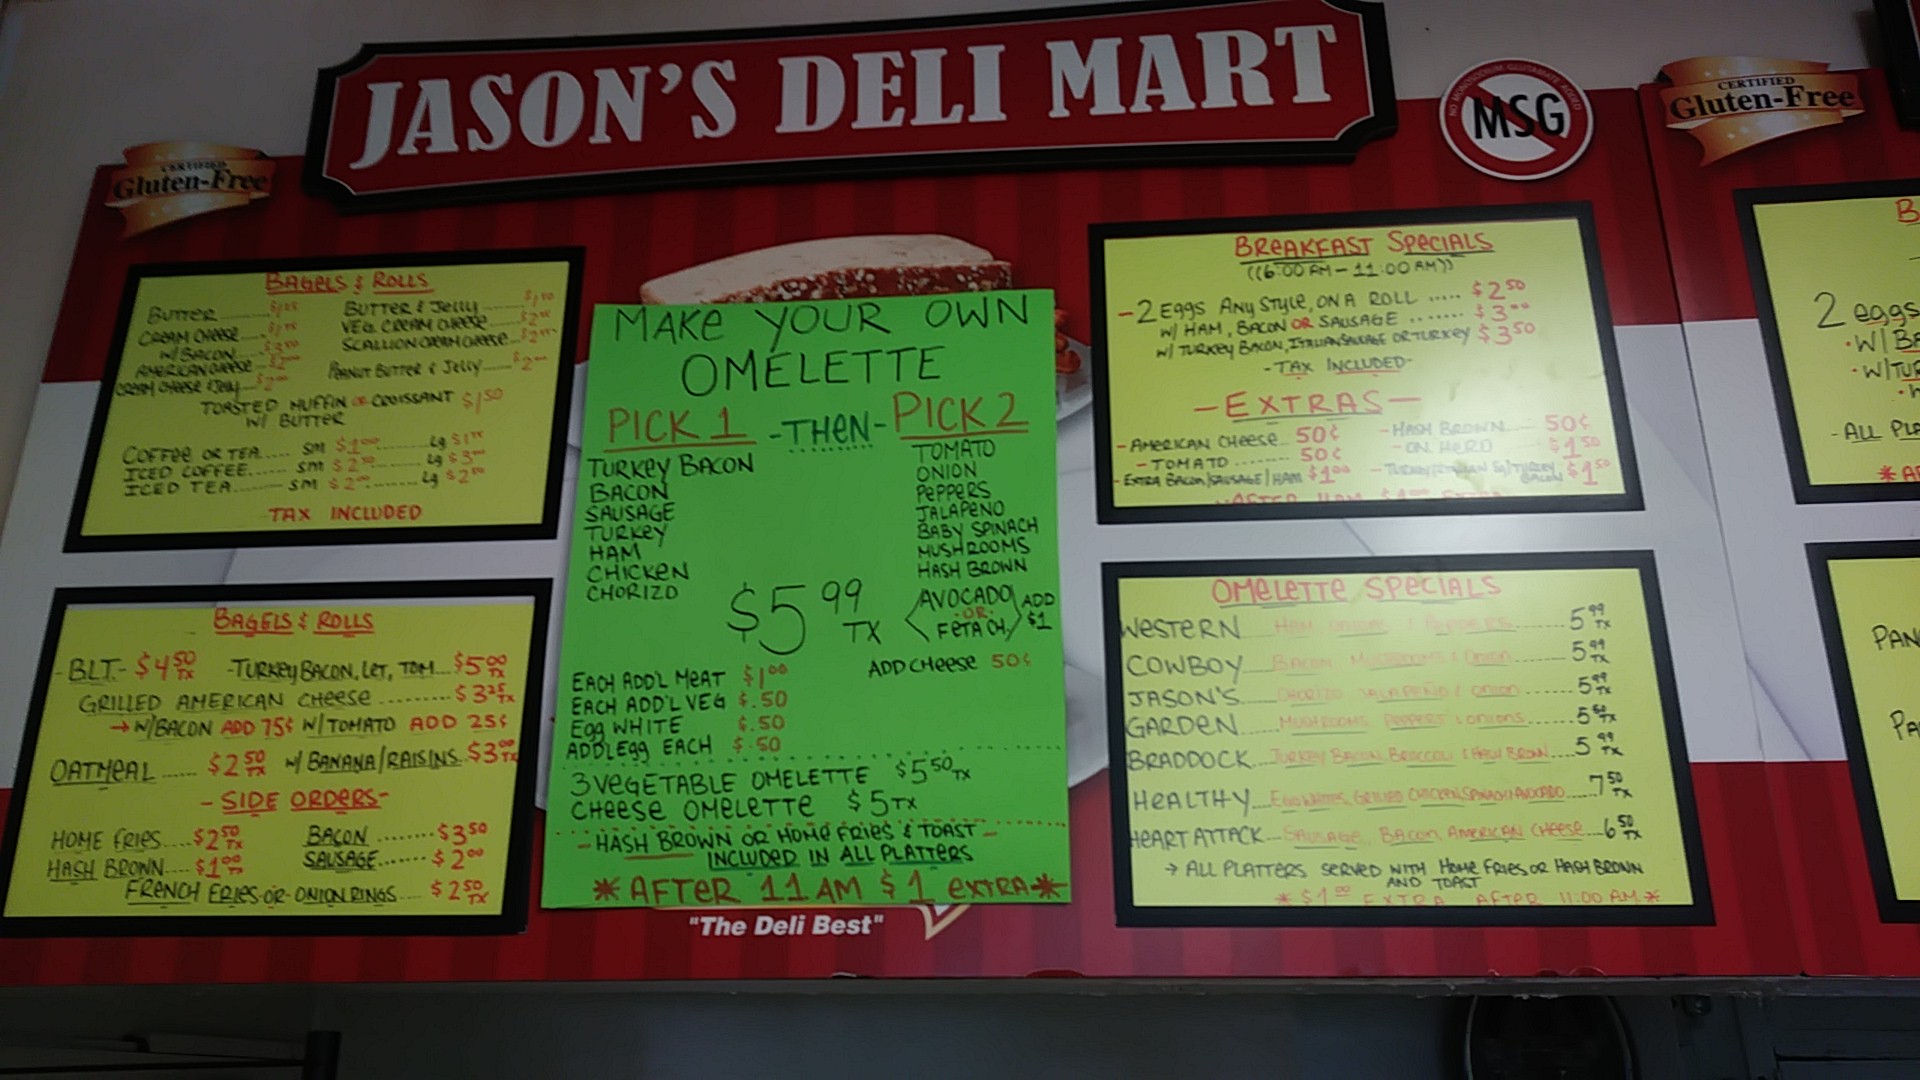 JASON'S DELI MART
NO MONOSODIUM GLUTAMATE ADDED
MSG
CERTIFIED
Gluten-Free
CERTIFIED
Gluten-Free
BAGELS & ROLLS
BUTTER
CREAM CHEESE
W/ BACON
AMERICAN CHEESE
CREAM CHEESE & JELLY
BUTTER & JELLY
VEG. CREAM CHEESE
SCALLION CREAM CHEESE
PEANUT BUTTER & JELLY
TOASTED MUFFIN OR CROISSANT $1.50
W/ BUTTER
COFFEE OR TEA.... SM $1.00 ...... Lg
ICED COFFEE...... SM ...... Lg
ICED TEA........ SM ...... Lg
TAX INCLUDED
BAGELS & ROLLS
-BLT- $4.50 TX -TURKEY BACON, LET, TOM... $5.00 TX
GRILLED AMERICAN CHEESE ........ $3.25 TX
→ W/BACON ADD 75¢ W/TOMATO ADD 25¢
OATMEAL ..... $2.50 TX W/ BANANA/RAISINS. $3.00 TX
- SIDE ORDERS-
HOME FRIES.....$2.50 TX BACON ........$3.50
HASH BROWN.....$1.00 TX SAUSAGE....... $2.00
FRENCH FRIES-OR-ONION RINGS.... $2.50 TX
MAKE YOUR OWN
OMELETTE
PICK 1 -THEN- PICK 2
TURKEY BACON
BACON
SAUSAGE
TURKEY
HAM
CHICKEN
CHORIZO
TOMATO
ONION
PEPPERS
JALAPENO
BABY SPINACH
MUSHROOMS
HASH BROWN
$5.99 TX
AVOCADO
-OR-
FETA CH.
ADD
$1
ADD CHEESE 50¢
EACH ADD'L MEAT $1.00
EACH ADD'L VEG $.50
Egg WHITE $.50
ADDL Egg EACH $.50
3 VEGETABLE OMELETTE $5.50 TX
CHEESE OMELETTE $5 TX
-HASH BROWN OR HOME FRIES & TOAST-
INCLUDED IN ALL PLATTERS
*AFTER 11 AM $1 EXTRA*
"The Deli Best"
BREAKFAST SPECIALS
((6:00 AM - 11:00 AM))
-2 EGGS ANY STYLE, ON A ROLL ..... $2.50
W/ HAM, BACON OR SAUSAGE ....... $3.00
W/ TURKEY BACON, ITALIAN SAUSAGE OR TURKEY $3.50
-TAX INCLUDED-
-EXTRAS-
-AMERICAN CHEESE.. 50¢
-TOMATO ........ 50¢
-EXTRA BACON/SAUSAGE/HAM $1.00
-HASH BROWN.... 50¢
-ON HERO $1.50
BACON $1.50
AFTER 11AM $1.00 EXTRA
OMELETTE SPECIALS
WESTERN HAM, ONIONS & PEPPERS 5.99 TX
COWBOY BACON MUSHROOMS & ONION 5.99 TX
JASON'S CHORIZO JALAPEÑO & ONION 5.99 TX
GARDEN MUSHROOMS PEPPERS & ONIONS 5.50 TX
BRADDOCK TURKEY BACON, BROCCOLI & HASH BROWN 5.99 TX
HEALTHY EGG WHITES, GRILLED CHICKEN, SPINACH AVOCADO 7.50 TX
HEART ATTACK SAUSAGE, BACON, AMERICAN CHEESE 6.50 TX
→ ALL PLATTERS SERVED WITH HOME FRIES OR HASH BROWN
AND TOAST
*$1.00 EXTRA AFTER 11:00 AM*
2 eggs